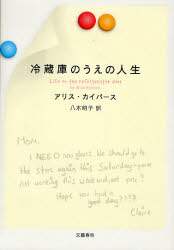 冷蔵庫のうえの人生
Life on the refrigerator door
アリス・カイパース
八木明子 訳
Mom,
I NEED new glasses. We should go to
the store again this Saturday—you're
not working this weekend, are you?
Hope you had a
good day????
Claire
文藝春秋